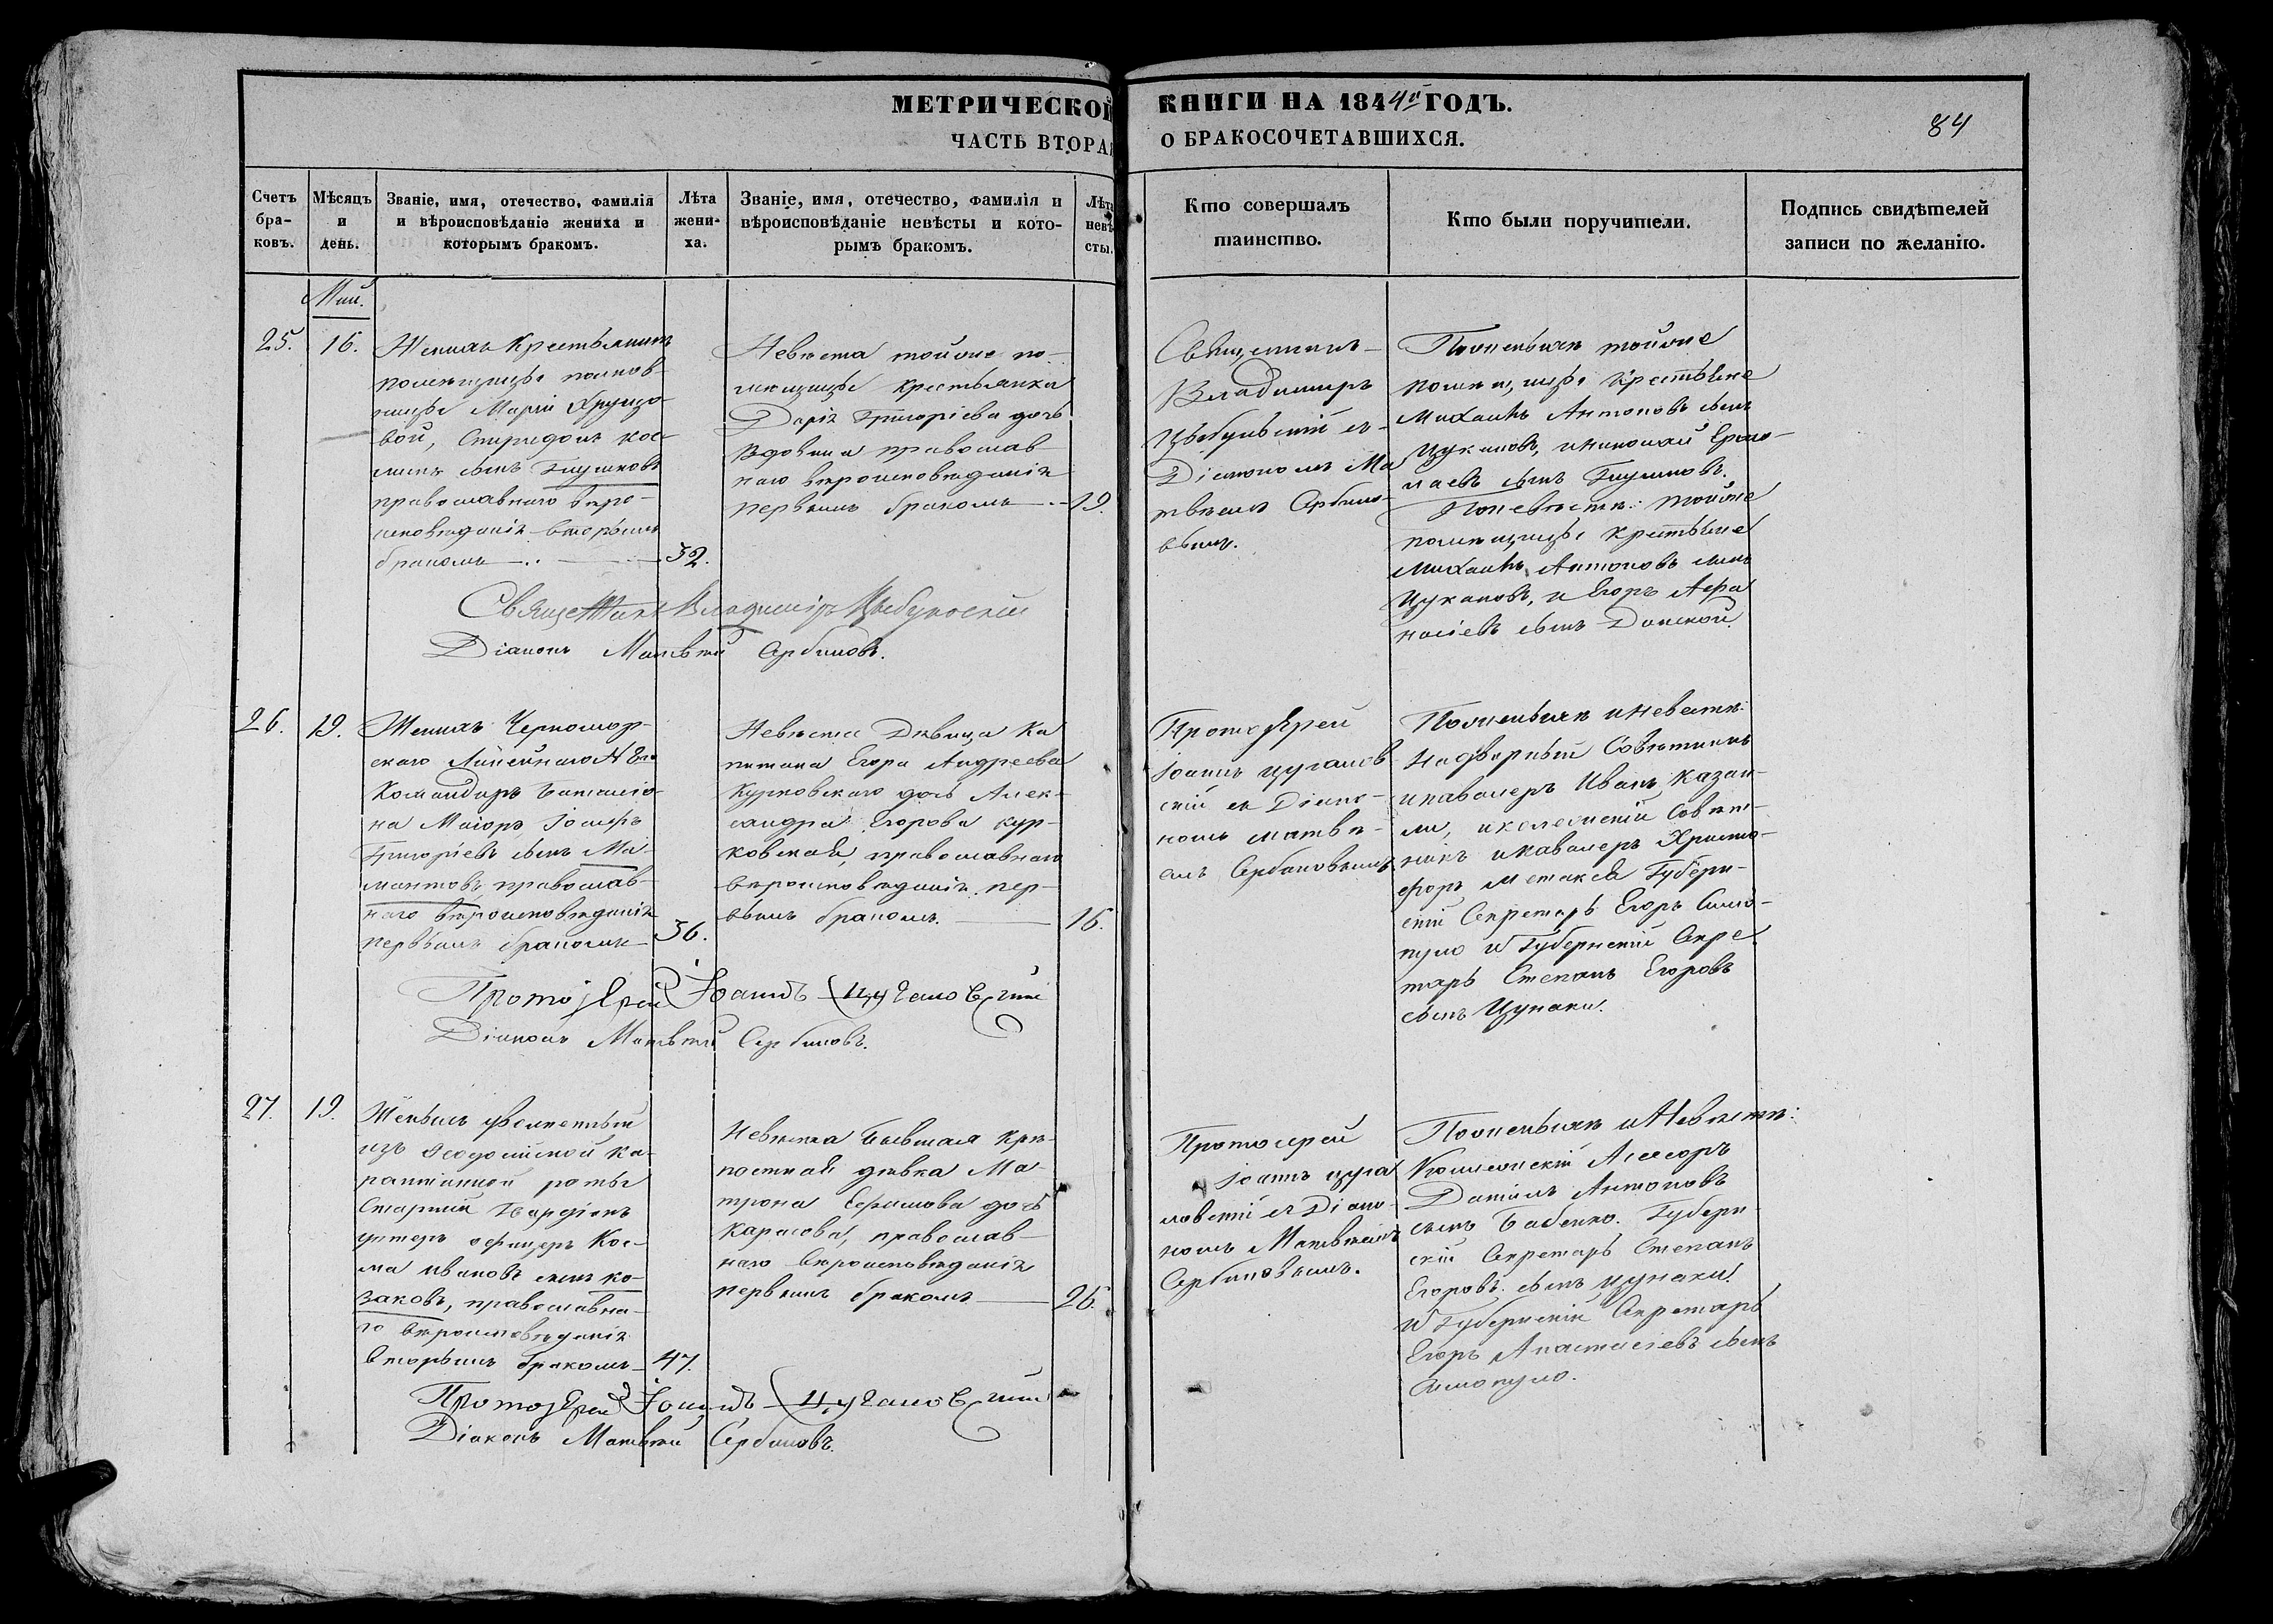 МЕТРИЧЕСКОЙ КНИГИ НА 1844й ГОДЪ.
ЧАСТЬ ВТОРАЯ О БРАКОСОЧЕТАВШИХСЯ.
84
Счетъ бра-
ковъ.
Мѣсяцъ
и
день.
Званіе, имя, отечество, фамилія
и вѣроисповѣданіе жениха и
которымъ бракомъ.
Лѣта
жени-
ха.
Званіе, имя, отечество, фамилія и
вѣроисповѣданіе невѣсты и кото-
рымъ бракомъ.
Лѣта
невѣ-
сты.
Кто совершалъ
таинство.
Кто были поручители.
Подпись свидѣтелей
записи по желанію.
Май.
25.
16.
Женихъ Крестьянинъ
помѣщицы полков-
ницы Маріи
вой, Спиридонъ Кос-
минъ сынъ Глушковъ
православнаго вѣро-
исповѣданія вторымъ
бракомъ
32.
Невѣста тойже по-
мѣщицы крестьянка
Дарія Григоріева дочь
православ
наго вѣроисповѣданія
первымъ бракомъ
19.
Священникъ
Владимиръ
Цыбульскій съ
Діакономъ Ма
твѣемъ Сербино-
вымъ.
Поженихѣ тойже
помѣщицы крестьяне
Михаилъ Антоновъ сынъ
Цукановъ, иниколай Ермо-
лаевъ сынъ Глушковъ.
Поневѣстѣ: тойже
помѣщицы крестьяне
Михаилъ Антоновъ сынъ
Цукановъ, и Егоръ Афа
насіевъ сынъ Донской.
Священникъ Владимиръ Цыбульскій
Діаконъ Матвѣй Сербиновъ.
26.
19.
Женихъ Черномор-
скаго Линейнаго №
Командиръ Баталіо-
на Маіоръ Іосифъ
Григорьевъ сынъ Ма
мантовъ, православ-
наго вѣроисповѣданія
первымъ бракомъ
36.
Невѣста Дѣвица Ка
питана Егора Андреева
Курковскаго дочь Алек-
сандра Егорова Кур-
ковская, православнаго
вѣроисповѣданія, пер-
вымъ бракомъ.
16.
Протоіерей
Іоаннъ Цугалов
скій съ Діако-
номъ Матвѣ-
емъ Сербиновымъ.
Поженихѣ иневѣстѣ:
Надворный Совѣтникъ
икавалеръ Иванъ Казан-
ли, иколежскій Совѣт-
никъ икавалеръ Христо-
форъ Метакса Губерн-
скій Секретарь Егоръ Симо-
пуло и Губернскій Секре
тарь Степанъ Егоровъ
сынъ Цунаки.
Протоіерей Іоаннъ Цугаловскій
Діаконъ Матвѣй Сербиновъ.
27.
19.
изъ Ѳеодосійской ка-
рантинной роты
Старшій Гвардіонъ
унтеръ офицеръ Кос-
ма Ивановъ сынъ Ко-
заковъ, православна-
го вѣроисповѣданія
вторымъ бракомъ
47.
Невѣста бывшая крѣ-
постная дѣвка Ма-
трона Ефимова дочь
Карасова, православ-
наго вѣроисповѣданія
первымъ бракомъ
26.
Протоіерей
Іоаннъ Цуга
ловскій съ Діако-
номъ Матвѣемъ
Сербиновымъ.
Поженихѣ и Невѣстѣ:
Колежскій Асесоръ
Даніилъ Антоновъ
сынъ Бабенко. Губерн-
скій Секретарь Степанъ
Егоровъ сынъ Цунаки.
и Губернскій Секретарь
Егоръ Анастасіевъ сынъ
Симопуло.
Протоіерей Іоаннъ Цугаловскій
Діаконъ Матвѣй Сербиновъ.